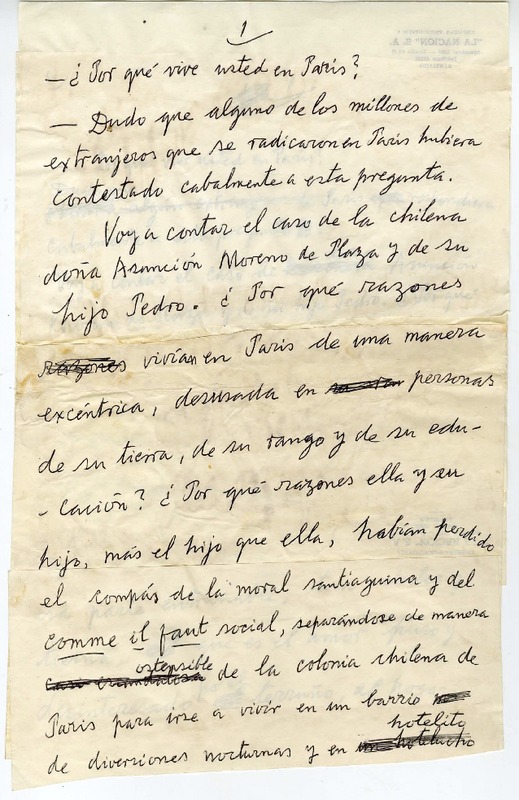 1
— ¿Por qué vive usted en París?
— Dudo que alguno de los millones de
extranjeros que se radicaron en París hubiera
contestado cabalmente a esta pregunta.
Voy a contar el caso de la chilena
doña Asunción Moreno de Plaza y de su
hijo Pedro. ¿Por qué razones
razones vivían en París de una manera
excéntrica, desusada en personas
de su tierra, de su rango y de su edu-
-cación? ¿Por qué razones ella y su
hijo, más el hijo que ella, habían perdido
el compás de la moral santiaguina y del
comme il faut social, separándose de manera
ostensible
casi escandalosa de la colonia chilena de
París para irse a vivir en un barrio
hotelito
de diversiones nocturnas y en un hotelucho